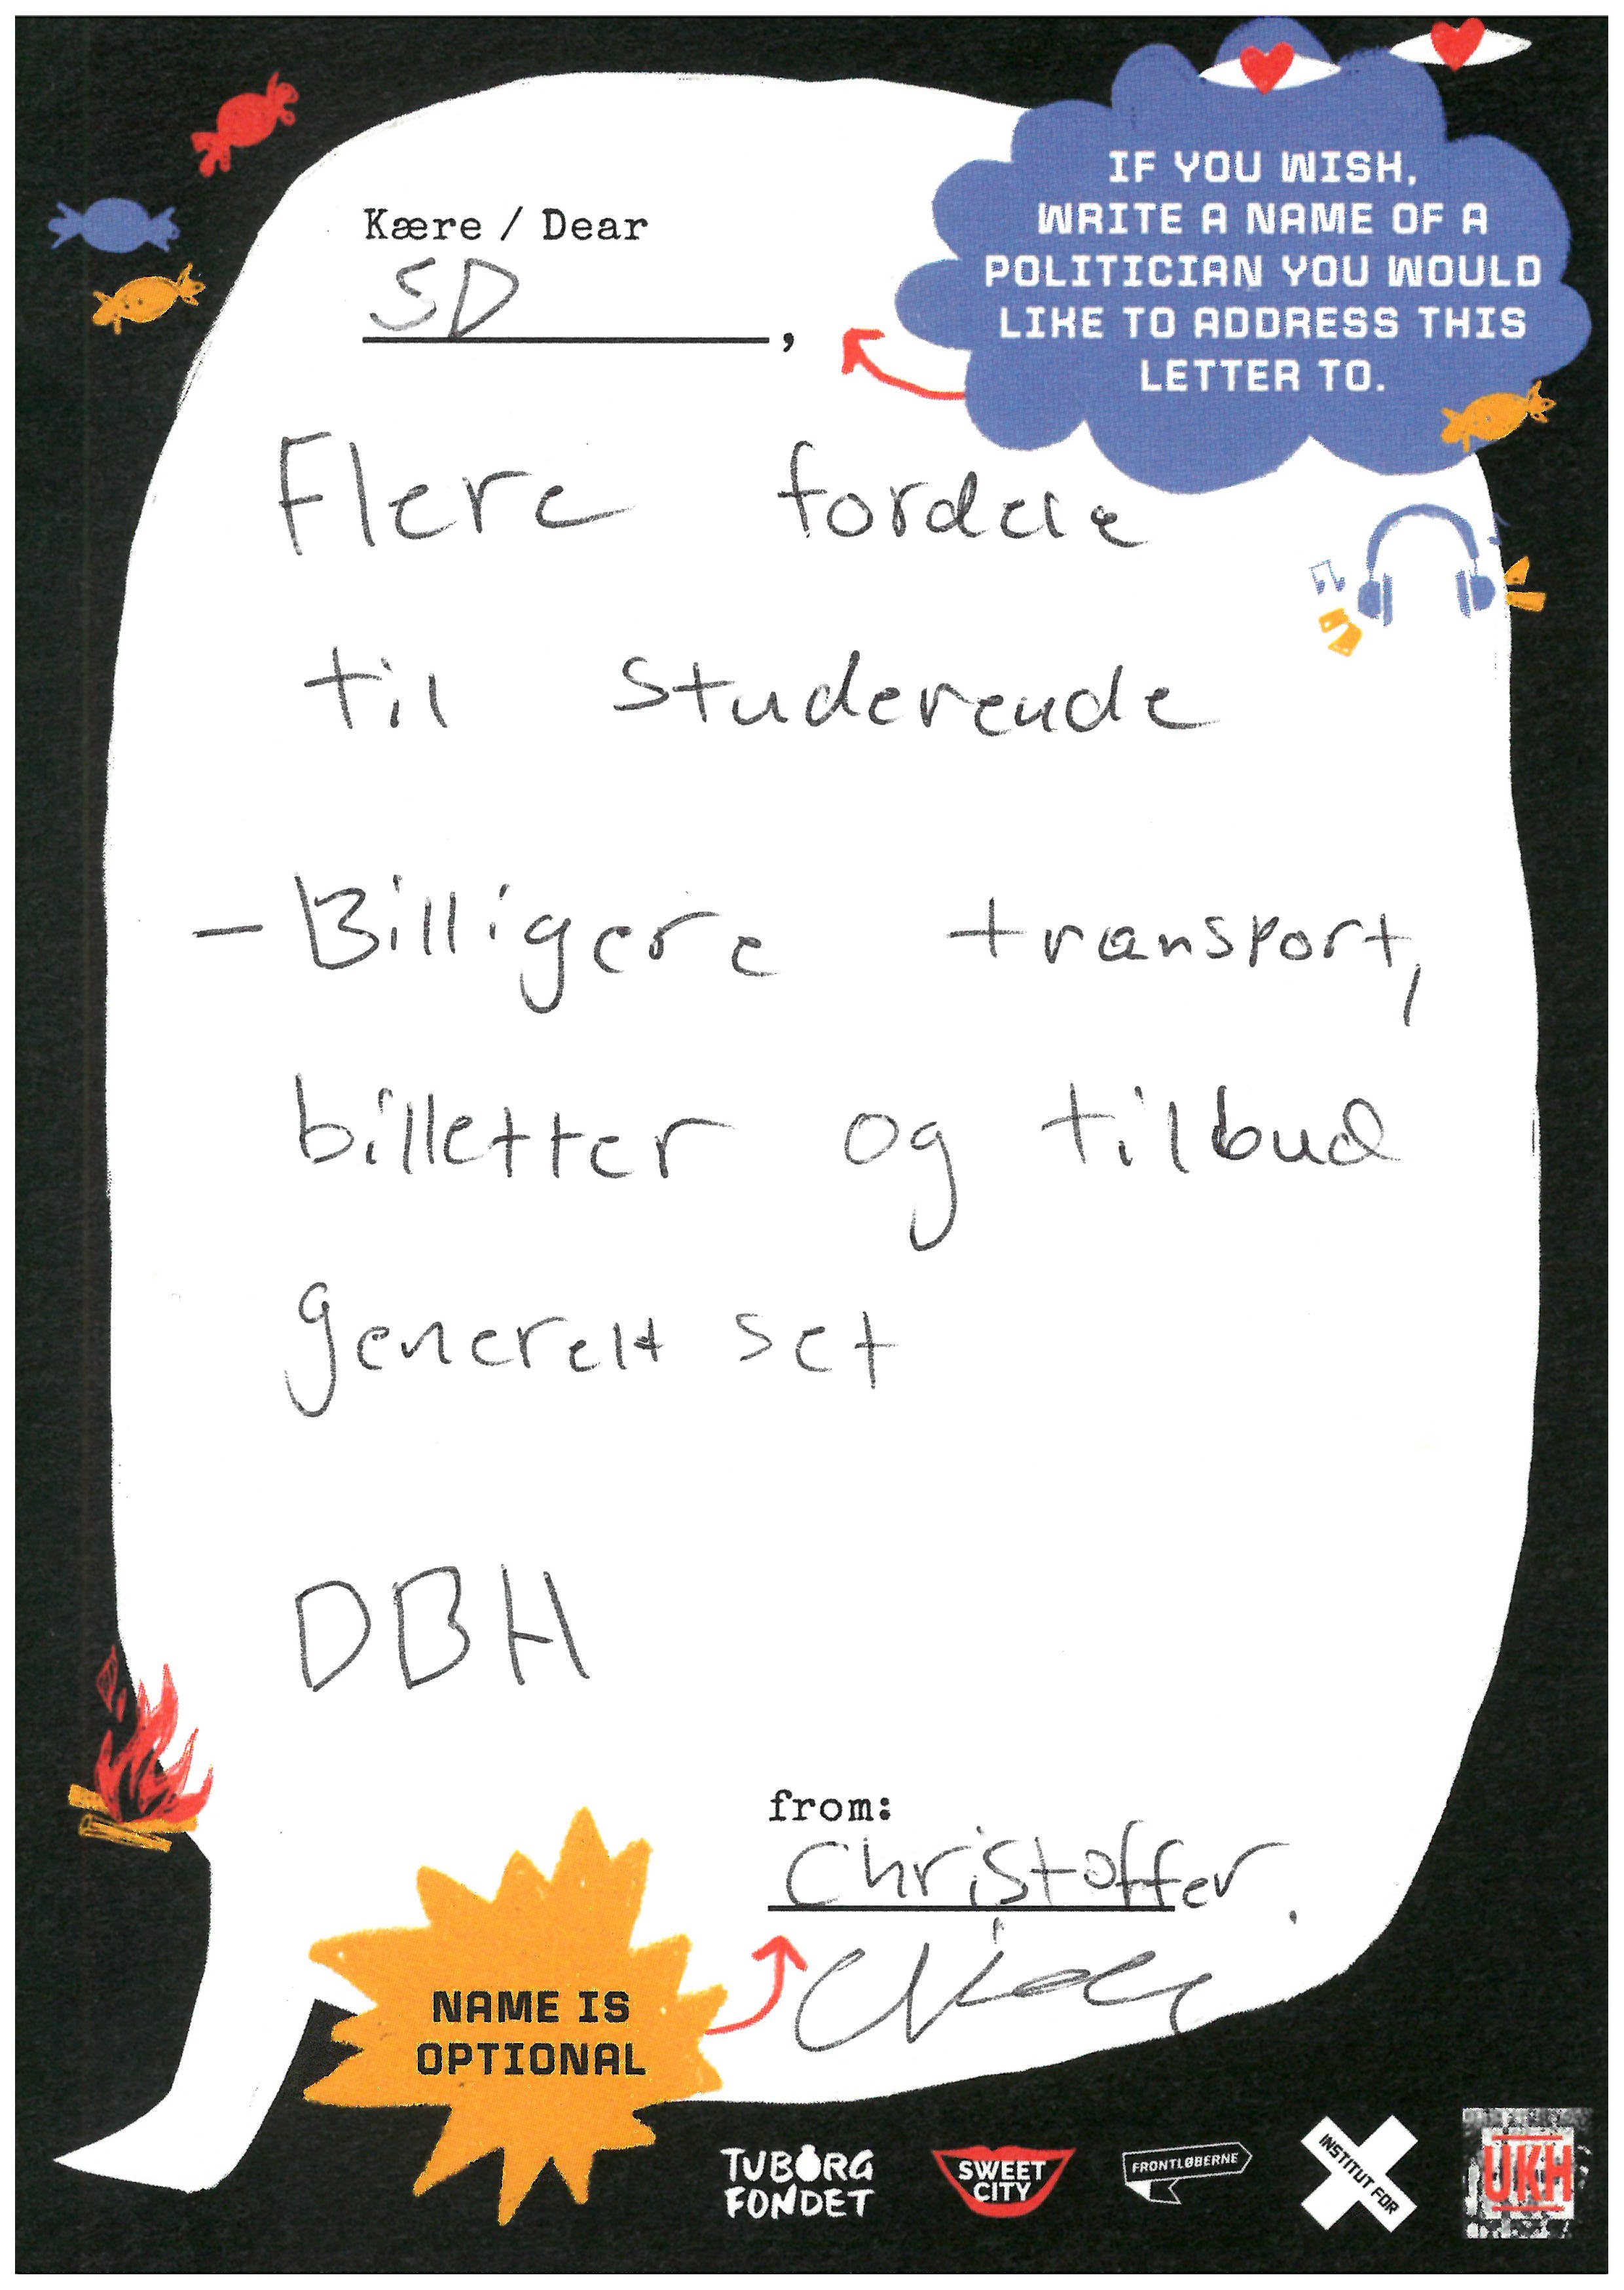 IF YOU WISH,
WRITE A NAME OF A
POLITICIAN YOU WOULD
LIKE TO ADDRESS THIS
LETTER TO.
Kære / Dear
SD
,
Flere fordele
til studerende
- Billigere transport,
billetter og tilbud
generelt set
DBH
from:
Christoffer.
NAME IS
OPTIONAL
TUBORG
FONDET
SWEET
CITY
FRONTLØBERNE
INSTITUT FOR
UKH